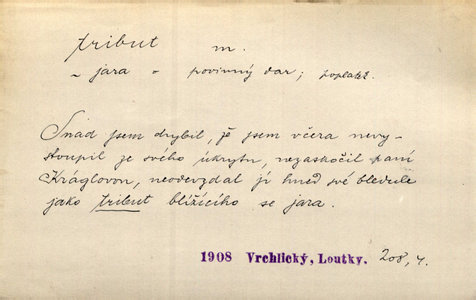 tribut m.
~ jara = povinný dar; poplatek.
Snad jsem chybil, že jsem včera nevy-
stoupil ze svého úkrytu, nezaskočil paní
Kráglovou, neodevzdal jí hned své bledule
jako tribut blížícího se jara.
1908 Vrchlický, Loutky. 208, 4.